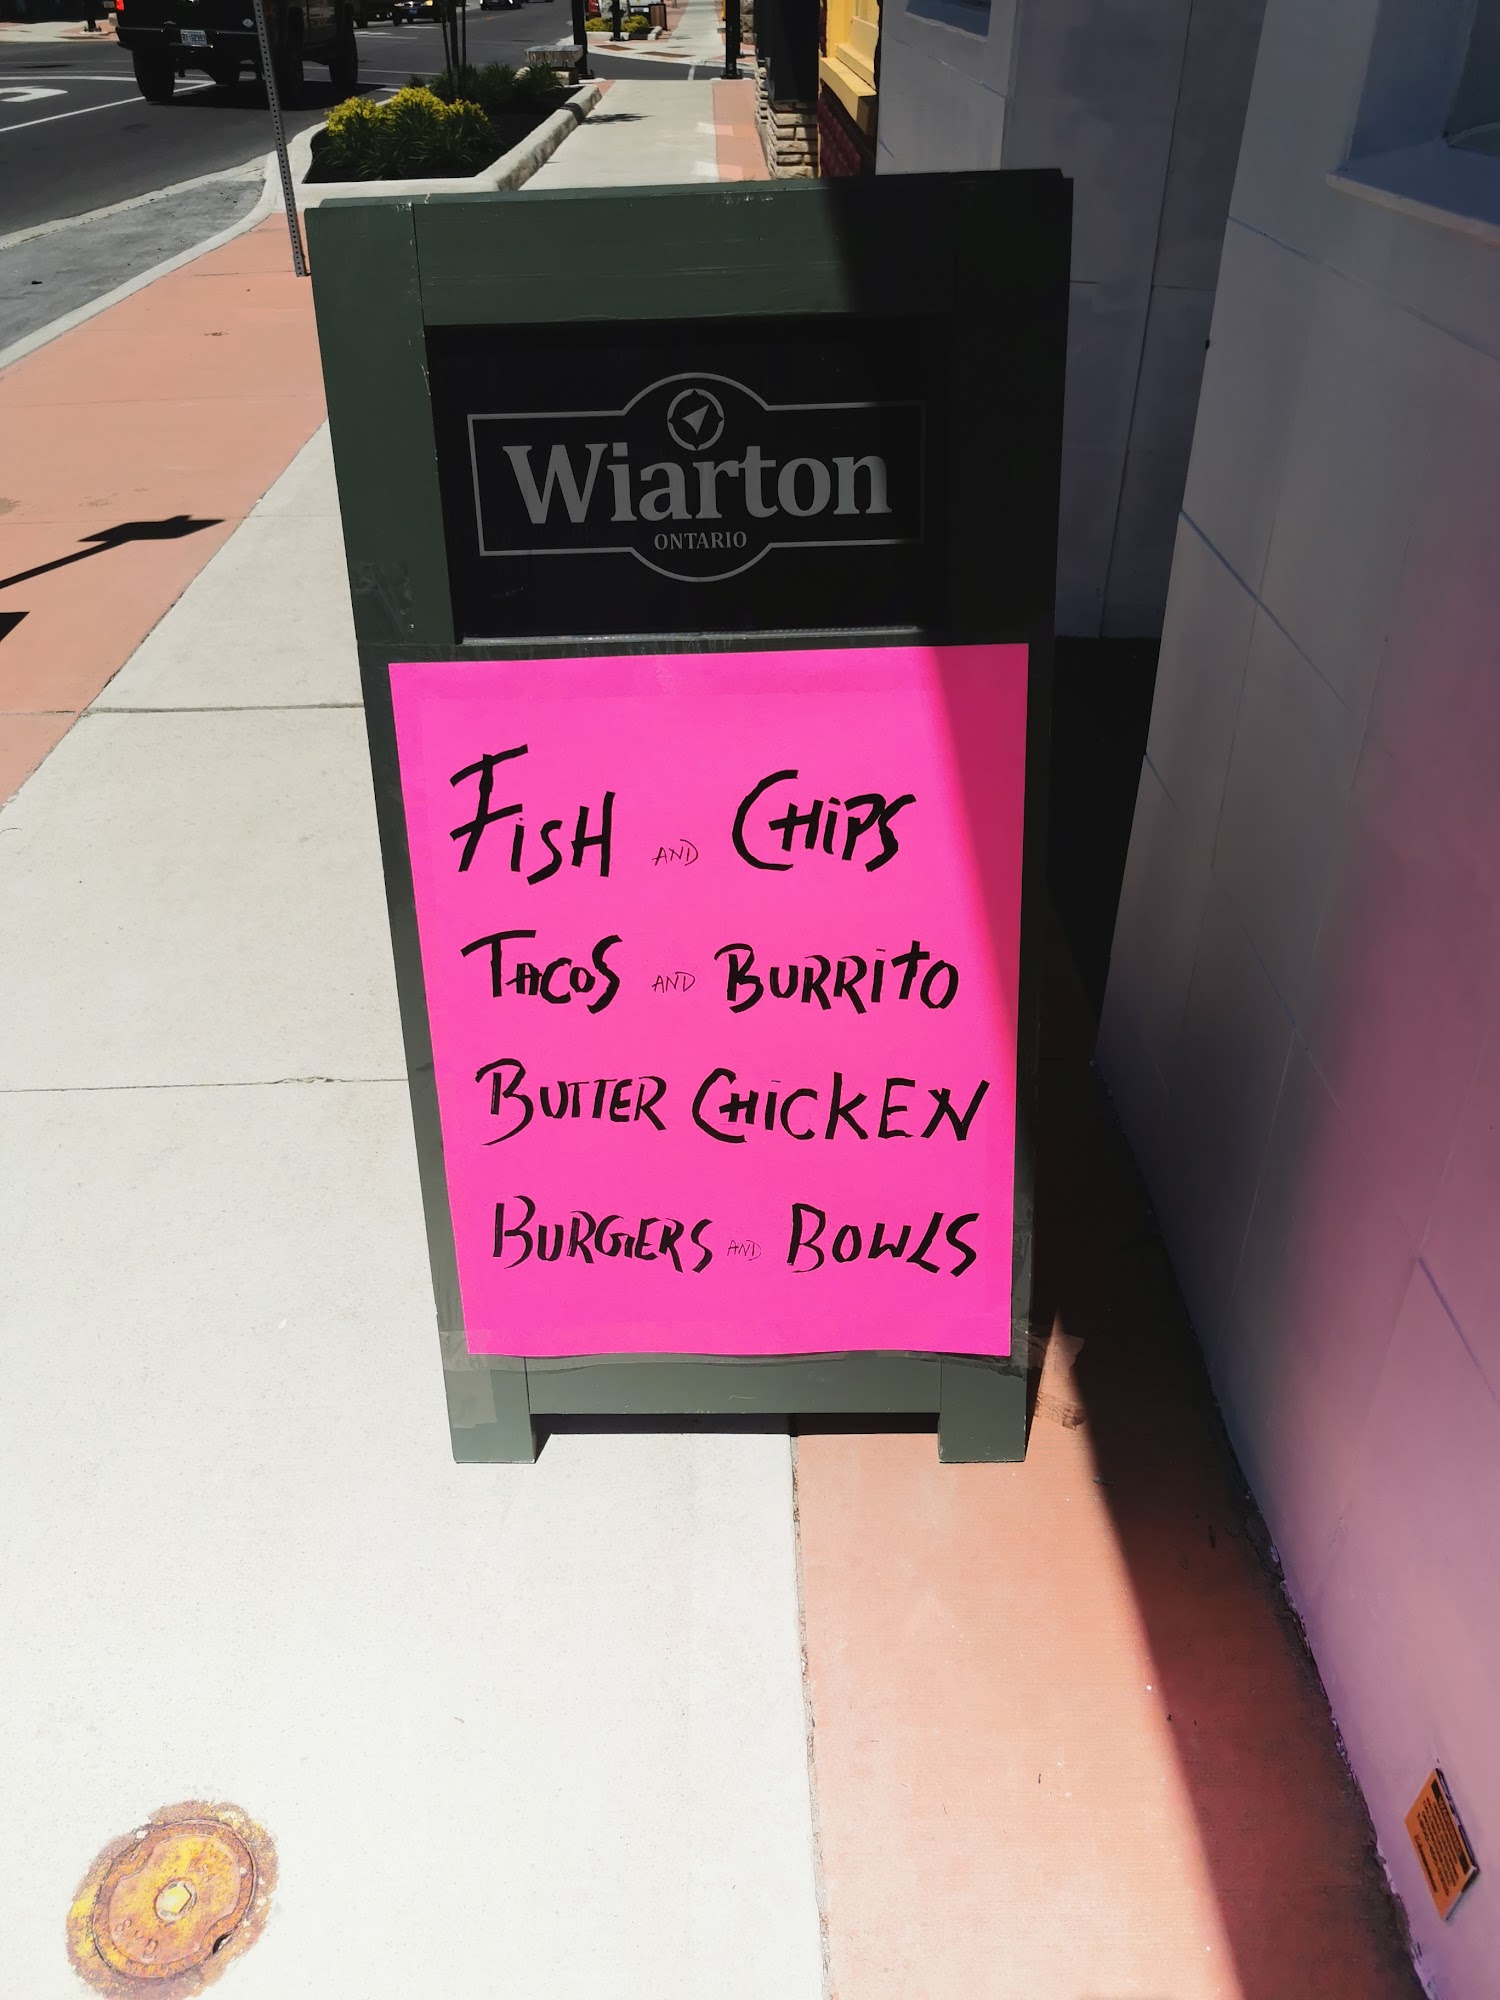 Wiarton
ONTARIO
FiSH AND CHiPS
TACOS AND BURRiTO
BUTTER CHiCKEN
BURGERS AND BOWLS